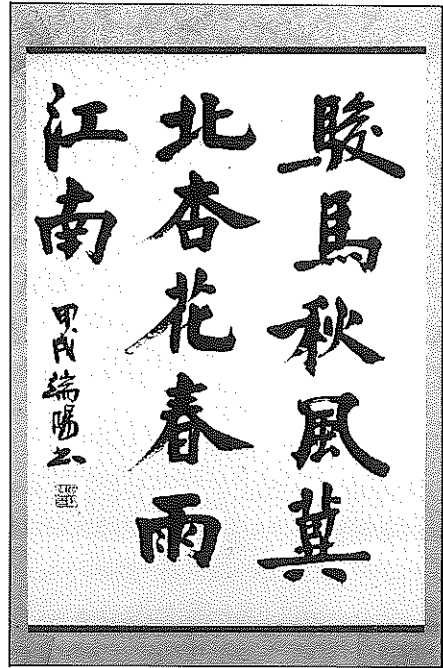 駿馬秋風冀
北杏花春雨
江南
甲戌端陽書